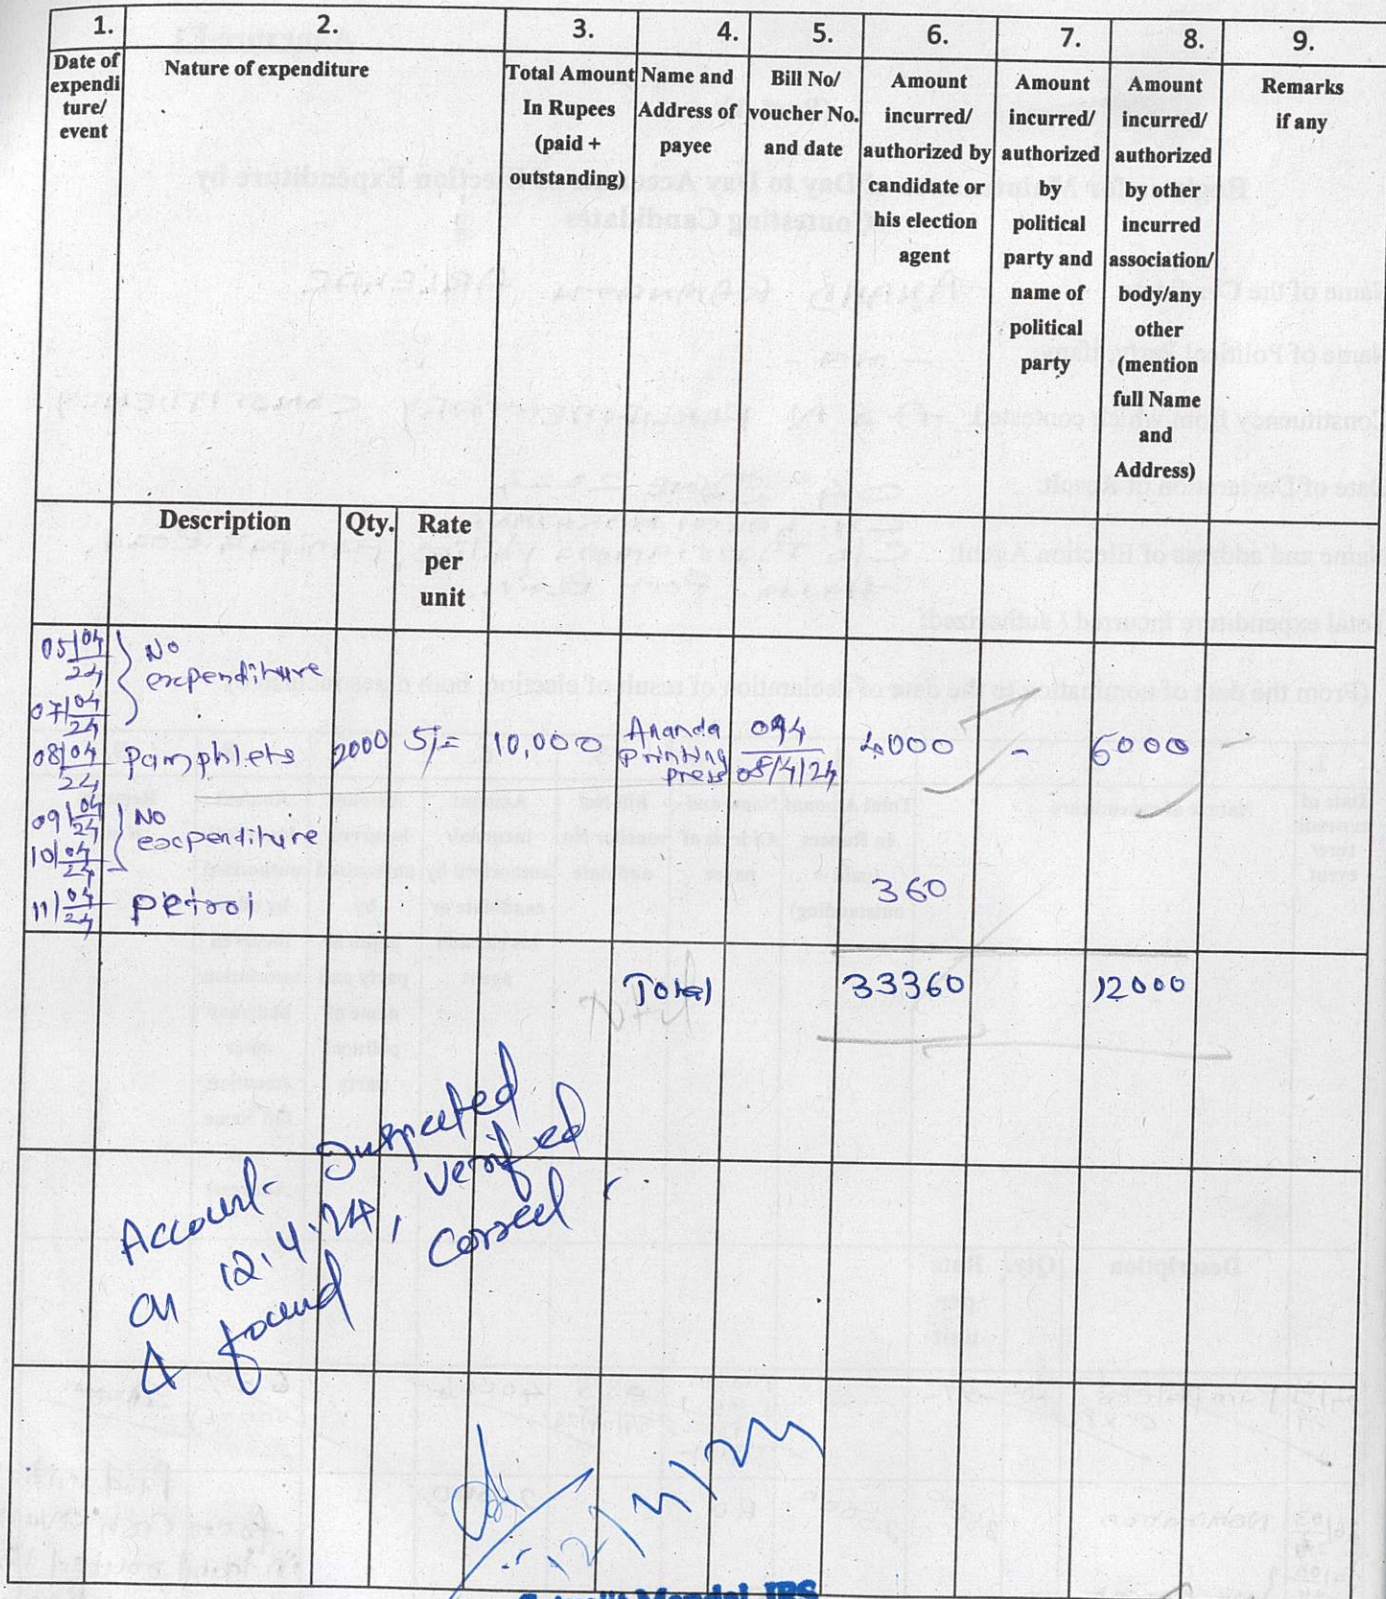 1. 2. 3. 4. 5. 6. 7. 8. 9.
Date of expendi ture/ event
Nature of expenditure
Total Amount In Rupees (paid + outstanding)
Name and Address of payee
Bill No/ voucher No. and date
Amount incurred/ authorized by candidate or his election agent
Amount incurred/ authorized by political party and name of political party
Amount incurred/ authorized by other incurred association/ body/any other (mention full Name and Address)
Remarks if any
Description Qty. Rate per unit
05/04/24 07/04/24 No expenditure
08/04/24 Pamphlets 2000 5/= 10,000 Ananda Printing press 094 08/4/24 4000 - 6000
09/04/24 10/04/24 No expenditure
11/04/24 Petrol 360
Total 33360 12000
Account inspected
on 12.4.24, verified
& found correct
12/4/24
Mandal, IRS